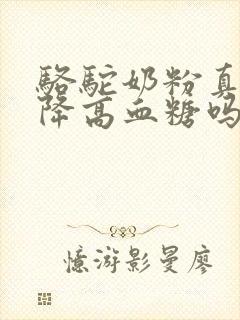 駱駝奶粉真
降高血糖吗
憶游影曼廖